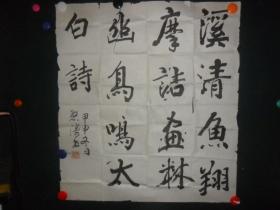 溪清魚翔
摩詰畫林
幽鳥鳴太
白詩
甲申冬日